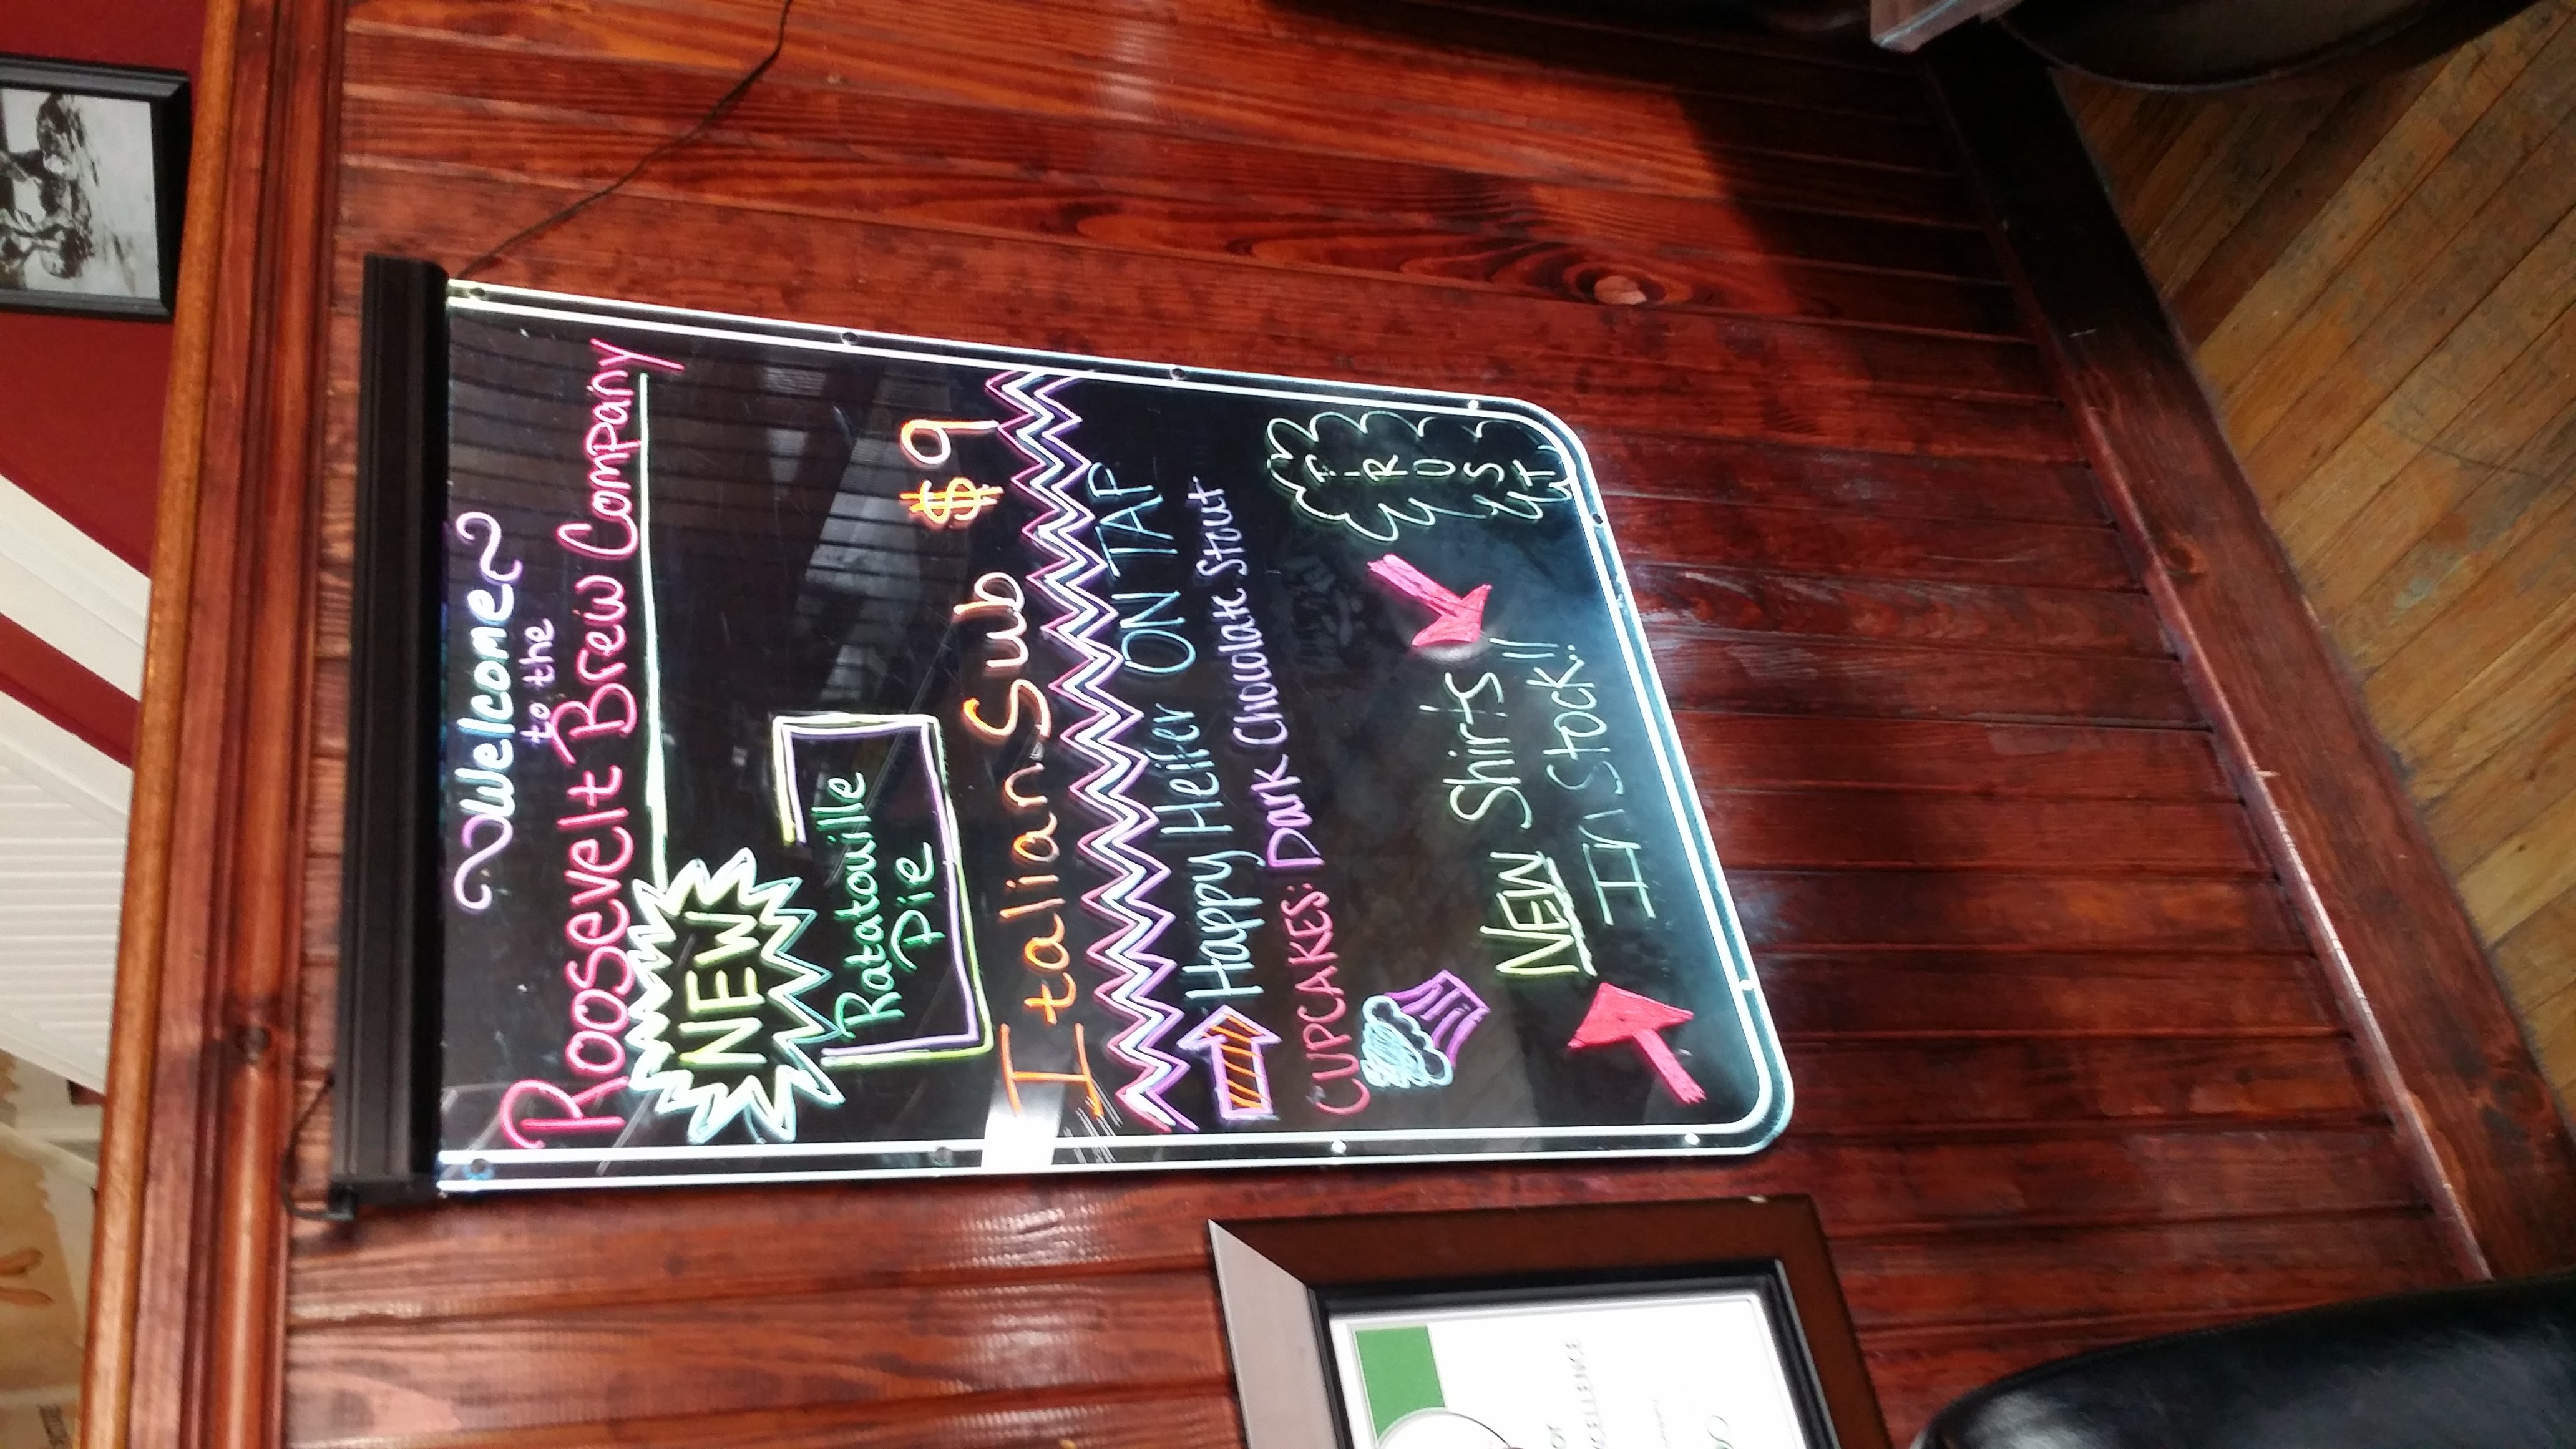 Welcome
to the
Roosevelt Brew Company
NEW
Ratatouille
Pie
Italian Sub $9
Happy Heifer ON TAP
CUPCAKES: Dark Chocolate Stout
TRUST
NEW Shirts
IN Stock!!
OF